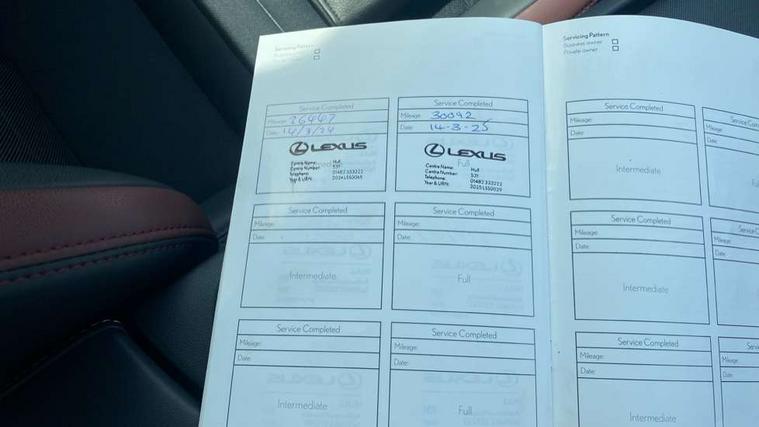 Servicing Pattern
Servicing Pattern
Business owner
Private owner
Service Completed
Mileage: 26447
Date: 14/3/24
LEXUS
Centre Name: Hull
Centre Number: 531
Telephone: 01482 333222
Year & URN:
Service Completed
Mileage: 30092
Date: 14-3-25
LEXUS
Full
Centre Name: Hull
Centre Number: 531
Telephone: 01482 333222
Year & URN:
Service Completed
Mileage:
Date:
Intermediate
Service Completed
Mileage:
Date:
Intermediate
Service Completed
Mileage:
Date:
Full
Service Completed
Mileage:
Date:
Intermediate
Mileage:
Date:
Service Completed
Mileage:
Date:
Intermediate
Service Completed
Mileage:
Date:
Full
Service Completed
Mileage:
Date:
Intermediate
Mileage:
Date: